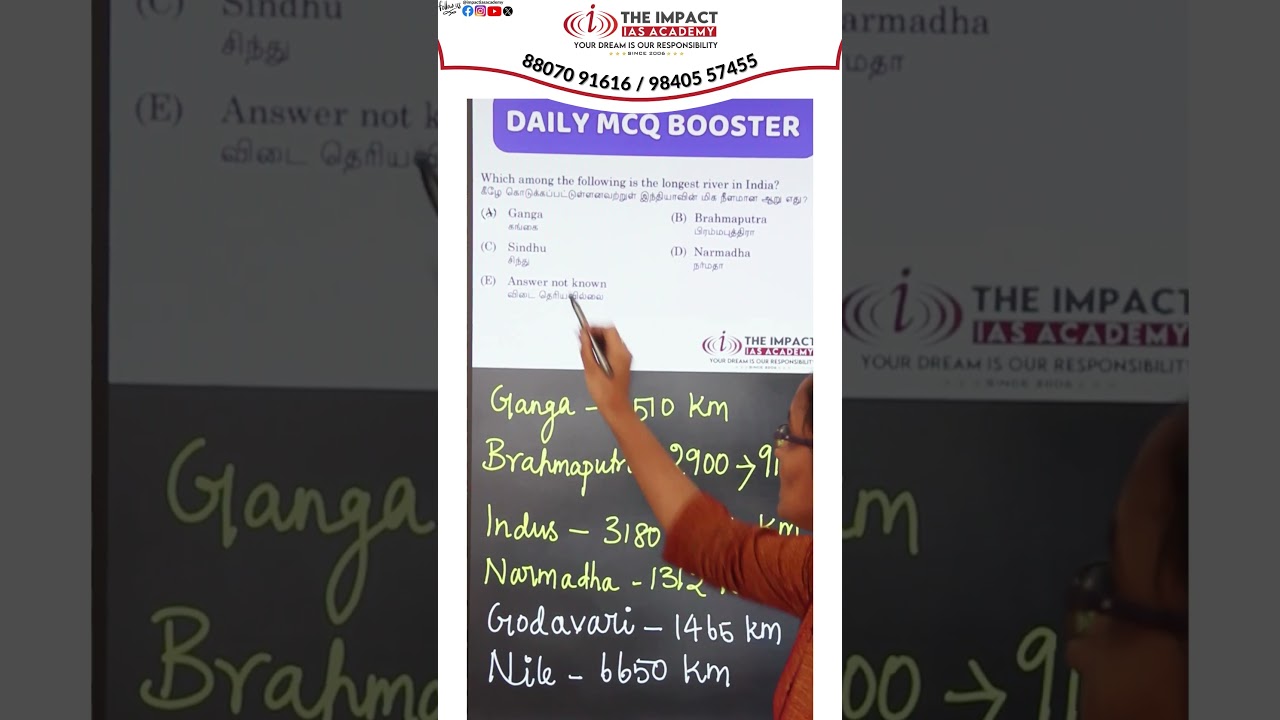 follow us @impactiasacademy
THE IMPACT
IAS ACADEMY
YOUR DREAM IS OUR RESPONSIBILITY
SINCE 2006
88070 91616 / 98405 57455
DAILY MCQ BOOSTER
Which among the following is the longest river in India?
கீழே கொடுக்கப்பட்டுள்ளனவற்றுள் இந்தியாவின் மிக நீளமான ஆறு எது?
(A) Ganga
கங்கை
(B) Brahmaputra
பிரம்மபுத்திரா
(C) Sindhu
சிந்து
(D) Narmadha
நர்மதா
(E) Answer not known
விடை தெரியவில்லை
THE IMPACT
IAS ACADEMY
YOUR DREAM IS OUR RESPONSIBILITY
SINCE 2006
Ganga – 510 Km
Brahmaputr 2900 → 91
Indus – 3180 Km
Narmadha - 1312
Godavari – 1465 km
Nile – 6650 Km
(C) Sindhu
சிந்து
(E) Answer not k
விடை தெரிய
Ganga
Brahma
armadha
மதா
THE IMPACT
IAS ACADEMY
YOUR DREAM IS OUR RESPONSIBILIT
SINCE 2006
m
00 → 91